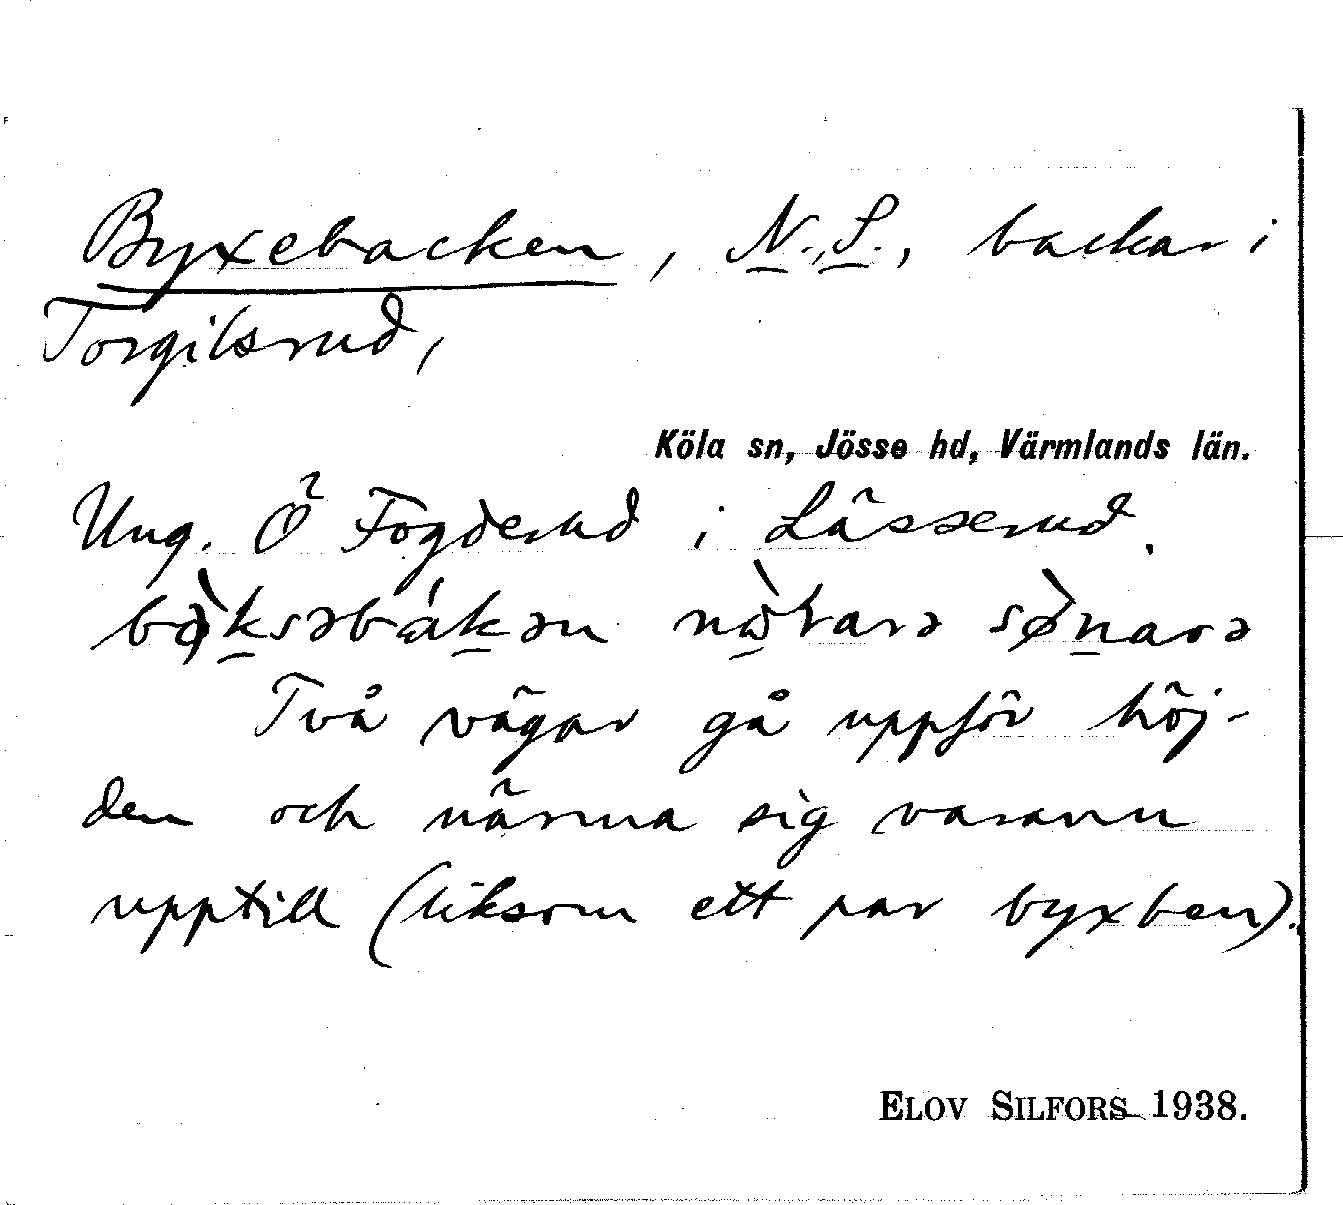 Byxebacken, N., S., backar i
Torgilsrud,
Köla sn, Jösse hd, Värmlands län.
Ung. Ö Fogderud i Lässerud.
Två vägar gå uppför höj-
den och närma sig varann
upptill (liksom ett par byxben).
ELOV SILFORS 1938.